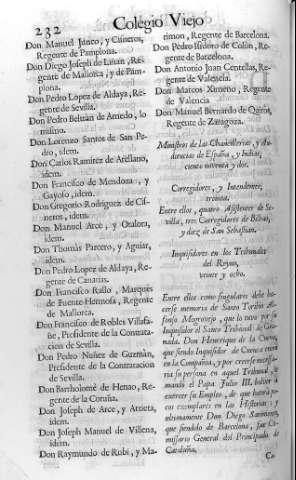 232 Colegio Viejo
Don Manuel Junco, y Cisneros,
Regente de Pamplona.
Don Diego Joseph de Liñan, Re-
gente de Mallorca, y de Pam-
plona.
Don Pedro Lopez de Aldaya, Re-
gente de Sevilla.
Don Pedro Beltran de Arnedo, lo
mismo.
Don Lorenzo Santos de San Pe-
dro, idem.
Don Carlos Ramirez de Arellano,
idem.
Don Francisco de Mendoza, y
Gayoso, idem.
Don Gregorio Rodriguez de Cis-
neros, idem.
Don Manuel Arce, y Otalora,
idem.
Don Thomàs Parcero, y Aguiar,
idem.
Don Pedro Lopez de Aldaya, Re-
gente de Canarias.
Don Francisco Rallo, Marquès
de Fuente-Hermosa, Regente
de Mallorca.
Don Francisco de Robles Villafa-
ñe, Presidente de la Contrata-
cion de Sevilla.
Don Pedro Nuñez de Guzmàn,
Presidente de la Contratacion
de Sevilla.
Don Bartholomè de Henao, Re-
gente de la Coruña.
Don Joseph de Arce, y Arrieta,
idem.
Don Joseph Manuel de Villena,
idem.
Don Raymundo de Rubi, y Ma-
rimon, Regente de Barcelona.
Don Pedro Isidoro de Colòn, Re-
gente de Barcelona.
Don Antonio Juan Centellas, Re-
gente de Valencia.
Don Marcos Ximeno, Regente
de Valencia
Don Manuel Bernardo de Quiròs,
Regente de Zaragoza.
Ministros de las Chancillerias, y Au-
diencias de España, y Indias,
ciento noventa y dos.
Corregidores, y Intendentes,
treinta.
Entre ellos, quatro Assistentes de Se-
villa, tres Corregidores de Bilbao,
y diez de San Sebastian.
Inquisidores en los Tribunales
del Reyno,
veinte y ocho.
Entre ellos como singulares debe ha-
cerse memoria de Santo Toribio Al-
fonso Mogrovejo, que lo tuvo por su
Inquisidor el Santo Tribunal de Gra-
nada. Don Henrique de la Cueva,
que siendo Inquisidor de Cuenca entrò
en la Compañia, y por
ria su persona en aquel Tribunal, le
mandò el Papa Julio III. bolver à
exercer su Empleo, de que havrà po-
cos exemplares en las Historias: y
ultimamente Don Diego Sarmiento,
que siendolo de Barcelona, fue Co-
missario General del Principado de
Cataluña.
Co-